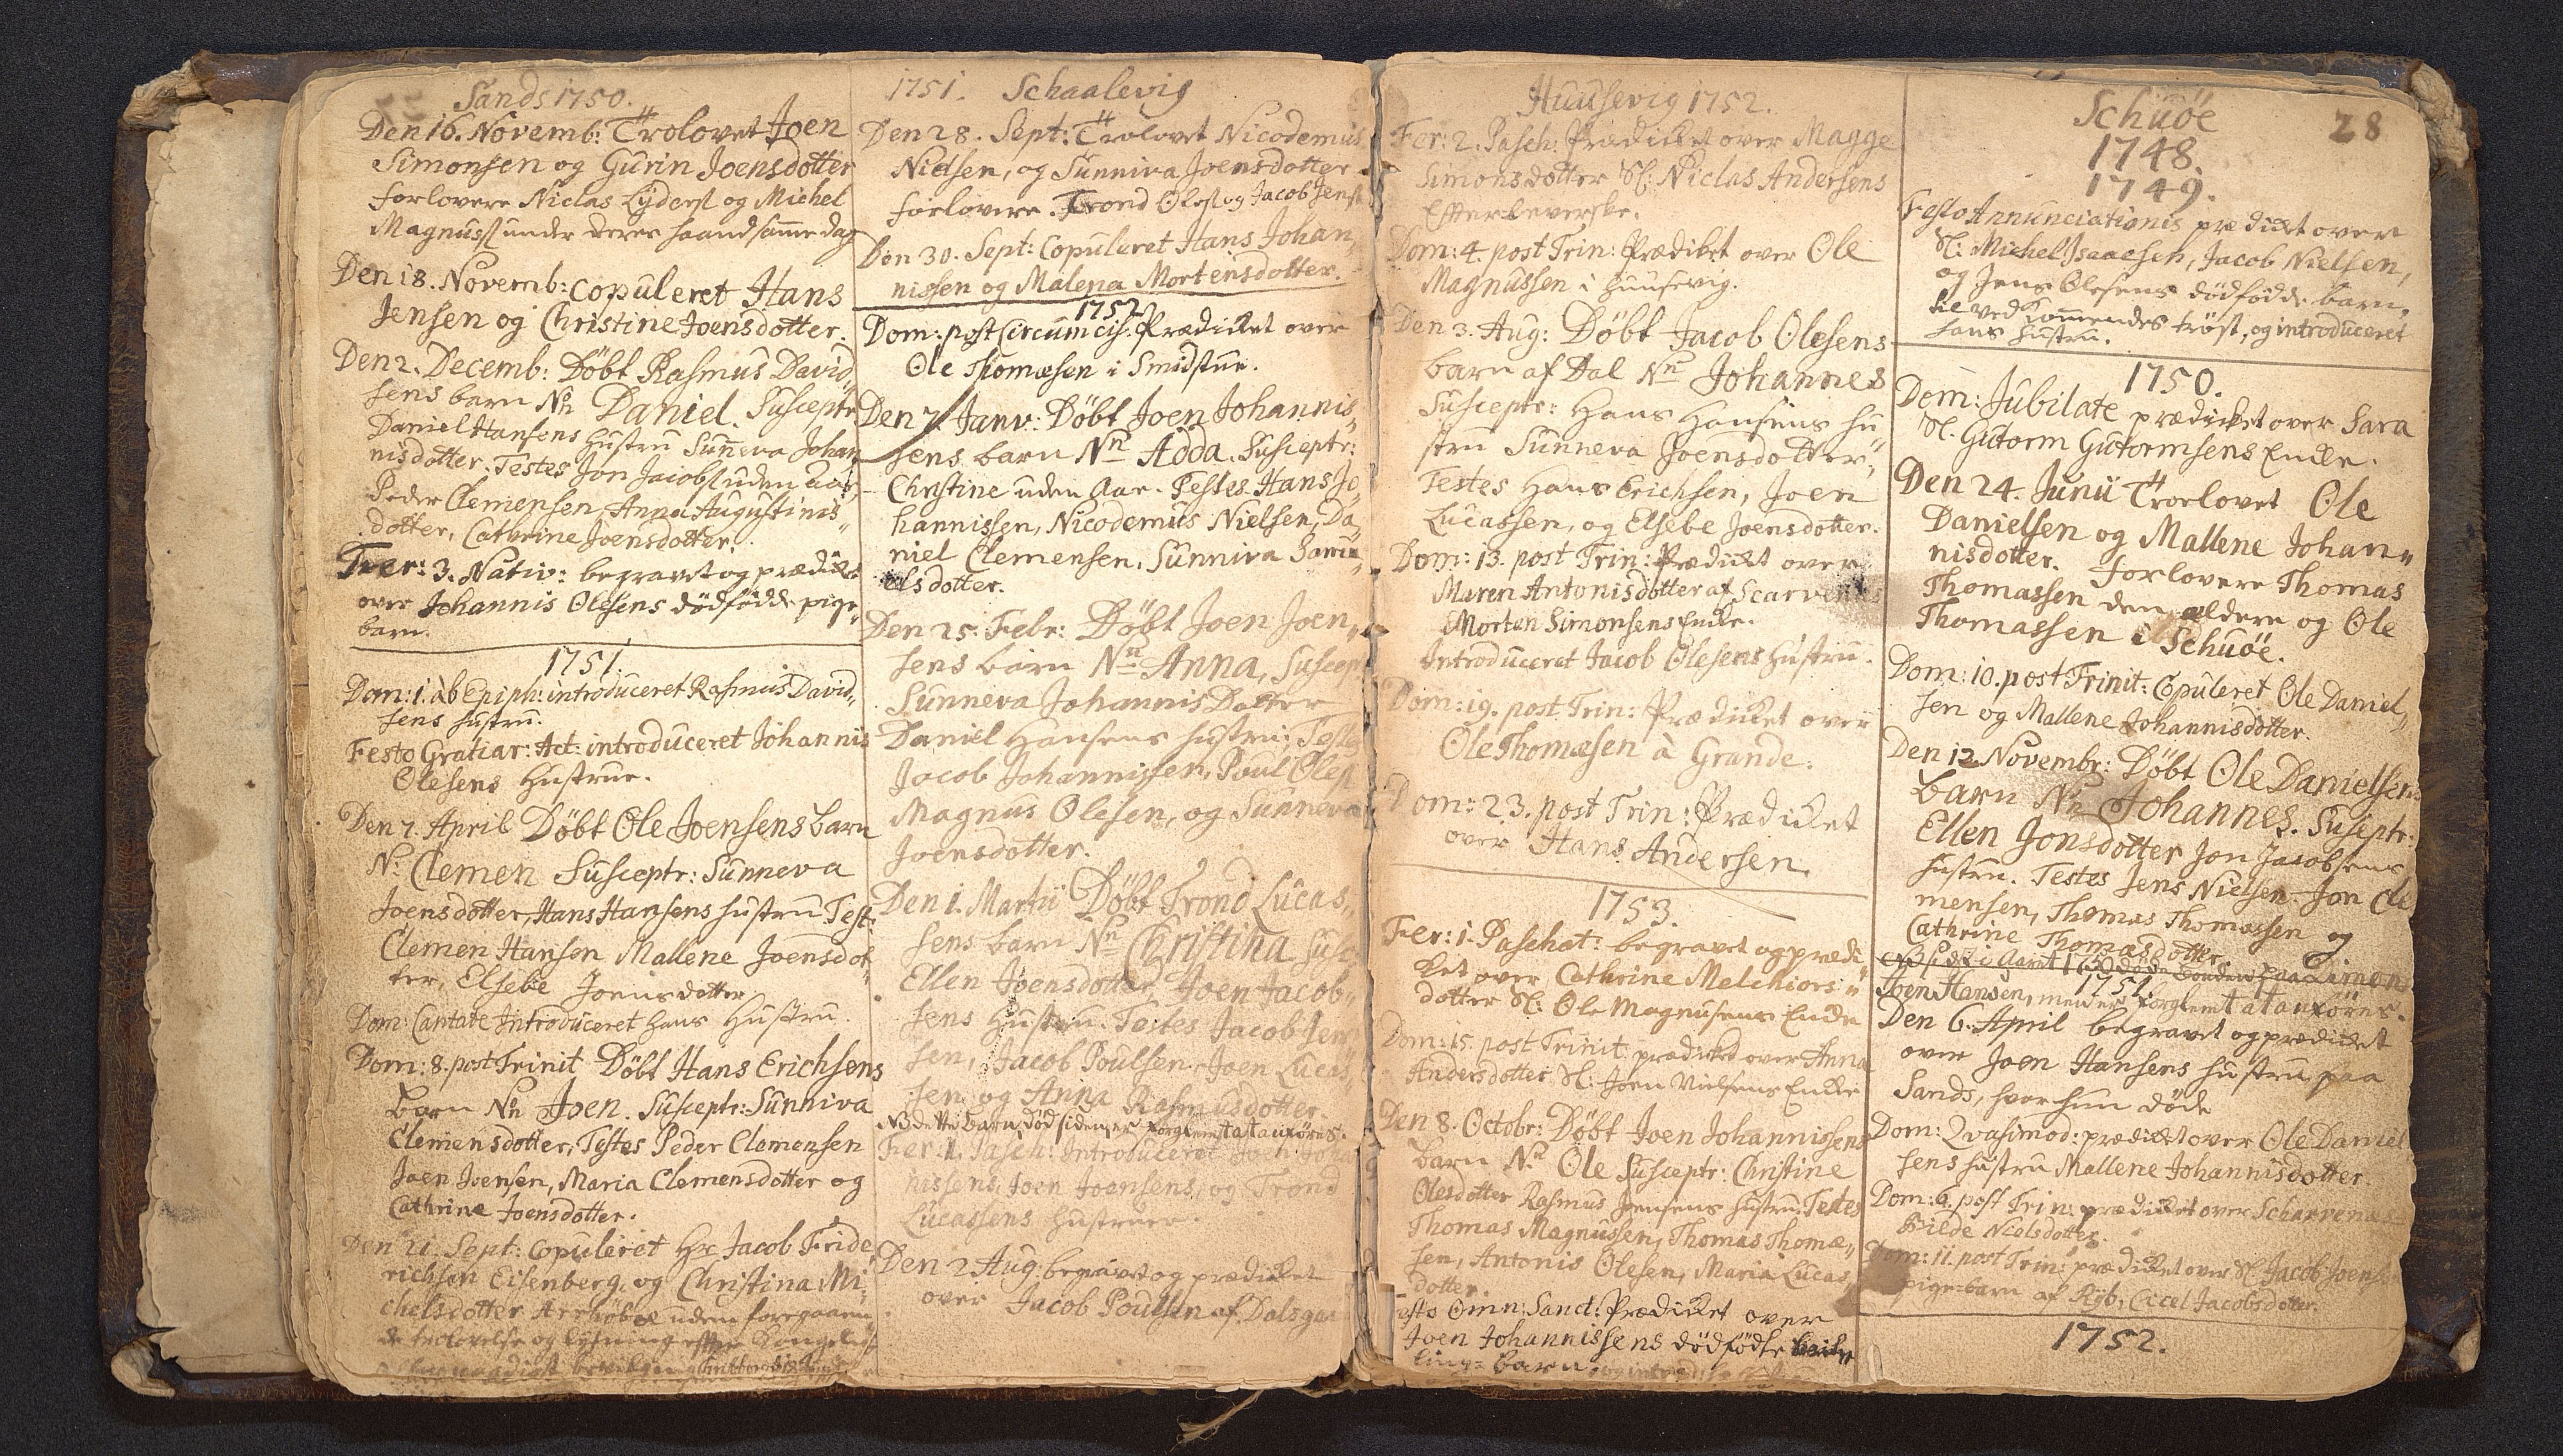 Sands 1750.
Den 16. Novemb: Trolovet Joen
Simonsen og Gurin Joensdotter
forlovere Niclas Lyders og Michel
Magnuss under deres haand samme dag
Den 18. Novemb: Copuleret Hans
Jensen og Christine Joensdotter.
Den 2. Decemb: Döbt Rasmus David„
sens barn Nn Daniel. Susceptr
Daniel Hansens hustru Sunneva Johan
nisdotter. Testes Jon Jacobs uden Aar,
Peder Clemensen, Anna Augustinis„
dotter, Cathrine Joensdotter.
Fer: 3. Nativ: begravet og prædiket
over Johannis Olesens dödfödde pige„
barn.
1751.
Dom: 1. ab Epiph: introduceret Rasmus David„
sens hustru.
Festo Gratiar: Act: introduceret Johannis
Olesens Hustrue.
Den 7. April Döbt Ole Joensens barn
N. Clemen Susceptr: Sunneva
Joensdotter, Hans Hansens hustru Test:
Clemen Hansen Mallene Joensdot„
ter, Elsebe Joensdotter
Dom: Cantate Introduceret hans Hustru.
Dom: 8. post Trinit Döbt Hans Erichsens
barn Nn Joen. Susceptr: Sunniva
Clemensdotter, Testes Peder Clemensen
Joen Joensen, Maria Clemensdotter og
Cathrine Joensdotter.
Den 21. Sept: Copuleret Hr Jacob Fride
richsen Eisenberg, og Christina Mi„
chelsdotter Arrhöboe uden foregaaen„
de trolovelse og lysning efter Kongelig
1751. Schaalevig
Den 28. Sept: Trolovet Nicodemus
Nielsen, og Sunniva Joensdotter
forlovere. Trond Oles og Jacob Jens
Den 30. Sept: Copuleret Hans Johan„
nissen og Malena Mortensdotter.
1752
Dom: post Circumcis: Prædiket over
Ole Thomæsen i Smidstue.
Den 7. Janv: Döbt Joen Johannis„
sens barn Nn Adda. Susceptr:
Christine uden Aar. Testes. Hans Jo„
hannissen, Nicodemus Nielsen, Da„
niel Clemensen, Sunniva Samu„
elsdotter.
Den 25. Febr: Döbt Joen Joen„
sens barn Nn Anna, Suscep
Sunneva Johannis Dotter
Daniel Hansens hustru; Testes
Jacob Johannissen, Poul Oles
Magnus Olesen, og Sunneva
Joensdotter.
Den 1. Martii Döbt Trond Lucas„
sens barn Nn Christina Susc
Ellen Joensdotter Joen Jacob„
sens Hustru. Testes Jacob Jen
sen, Jacob Poulsen. Joen Lucas„
sen og Anna Rasmusdotter.
NB dette barn död siden er forglemt at anföres.
Fer: 1. Pasch: Introduceret Joen Joha
nissens, Joen Joensens, og Trond
Lucassens hustruer.
Den 2 Aug: begravet og prædiket
over Jacob Poulsen af Dalsgar
Huusevig 1752.
Fer: 2. Pasch: Prædiket over Magge
Simonsdotter Sl: Niclas Andersens
Effterleverske.
Dom: 4. post Trin: Prædiket over Ole
Magnussen i Huusevig.
Den 3. Aug: Döbt Jacob Olesens
barn af Dal Nn Johannes
Susceptr: Hans Hansens hu
stru Sunneva Joensdotter„
Testes Hans Erichsen, Joen
Lucassen, og Elsebe Joensdotter.
Dom: 13. post Trin: Prædiket over
Maren Antonisdotter af Scarvenes
Morten Simonsens Enke.
Introduceret Jacob Olesens hustru.
Dom: 19. post Trin: Prædiket over
Ole Thomæsen à Grande.
Dom: 23. post Trin: Prædiket
over Hans Andersen.
1753.
Fer: 1. Paschat: begravet og prædi
ket over Cathrine Melchiors„
dotter Sl: Ole Magnusens Enke
Dom: 15. post Trinit: prædiket over Anna
Andersdotter Sl: Joen Nielsens Enke
Den 8. Octobr: Döbt Joen Johannissens
barn N. Ole Susceptr: Christine
Olesdotter Rasmus Joensens Hustru. Testes
Thomas Magnussen, Thomas Thomæ„
sen, Antonis Olesen, Maria Lucas„
dotter.
Festo Omn: Sanct: Prædiket over
Joen Johannissens dödfödte
barn
28
Schuöe
1748.
1749.
Festo Annunciationis prædiket over
Sl: Michel Isaacsen, Jacob Nielsen,
og Jens Olesens dödfödde barn,
til vedkommendes tröst, og introduceret
hans hustru.
1750.
Dom: Jubilate prædiket over Sara
Sl. Gutorm Gutormsens Enke.
Den 24. Junii Trorlovet Ole
Danielsen og Mallene Johan„
nisdotter. forlovere Thomas
Thomassen den ældere og Ole
Thomassen i Schuöe.
Dom: 10. post Trinit: Copuleret Ole Daniel„
sen og Mallene Johannisdotter.
Den 12 Novembr: Döbt Ole Danielsens
barn Nn Johannes. Suseptr:
Ellen Jonsdotter Jon Jacobsens
hustru. Testes Jens Nielsen Jon Cle
mensen, Thomas Thomassen og
Cathrine Thomasdotter.
NB sidst i Aaret 1750 döde bonden paa Limen
Joen Hansen, men er forglemt at anföres.
1751.
Den 6. April begravet og prædiket
over Joen Hansens hustru paa
Sands, hvor hun döde
Dom: Qvasimod: prædiket over Ole Daniel
sens hustru Mallene Johannisdotter.
Dom: 6. post Trin: prædiket over Scharvenæs
Kilde Nielsdotter.
Dom: 11. post Trin: prædiket over Sl Jacob Joens
pige-barn af Ryb, Cicel Jacobsdotter.
1752.